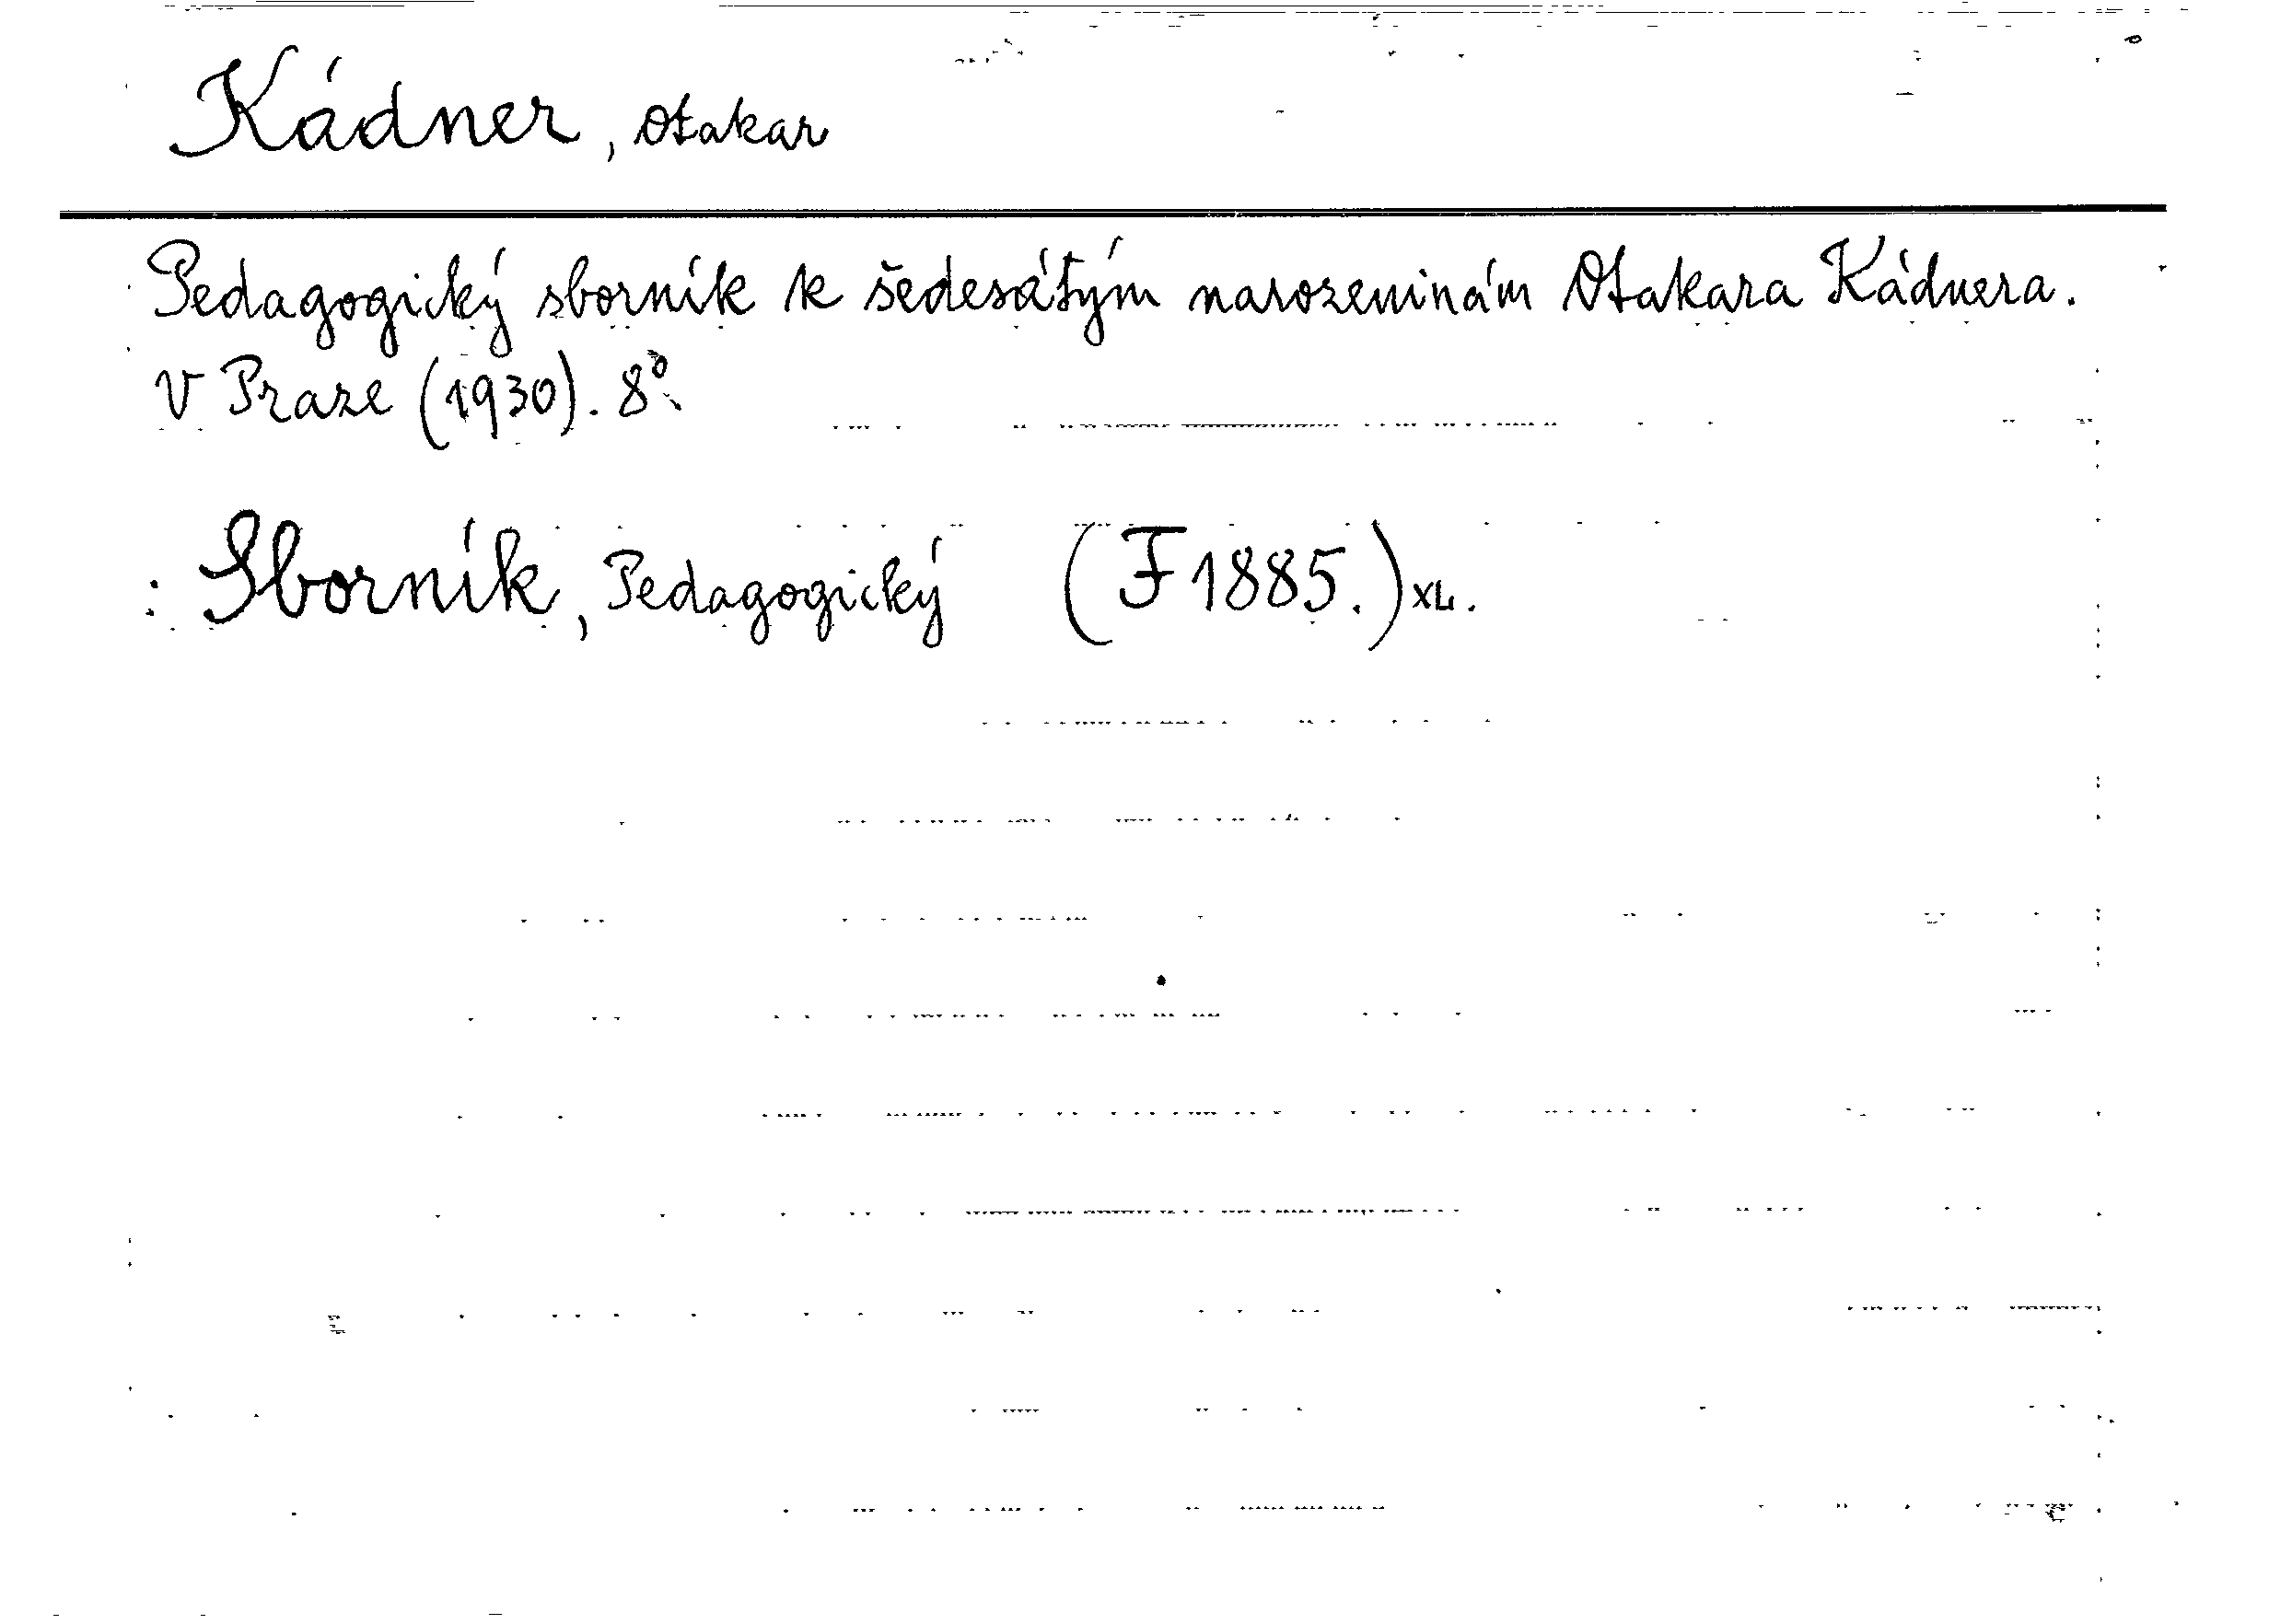 Kádner, Otakar
Pedagogický sborník k šedesátým narozeninám Otakara Kádnera.
V Praze (1930). 8°.
: Sborník, Pedagogický (F 1885.) XL.